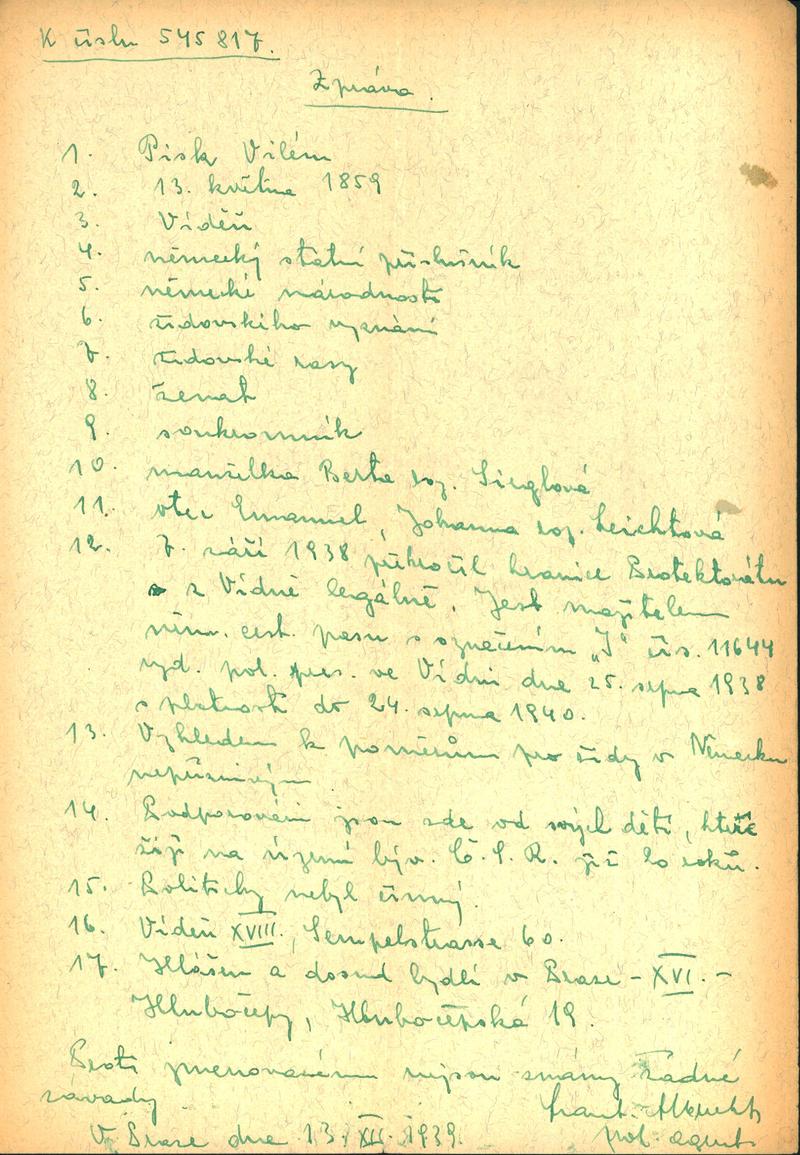 K číslu 545817.
Zpráva.
1. Pisk Vilém
2. 13. května 1859
3. Vídeň
4. německý státní příslušník
5. německé národnosti
6. židovského vyznání
7. židovské rasy
8. ženat
9. soukromník
10. manželka Berta roz. Sieglová
11. otec Emanuel, Johanna roz. Leichtová
12. 7. září 1938 překročil hranice Protektorátu
z Vídně legálně. Jest majitelem
něm. cest. pasu s označením „J" čís. 11644
vyd. pol. pres. ve Vídni dne 25. srpna 1938
s platností do 24. srpna 1940.
13. Vzhledem k poměrům pro židy v Německu
nepříznivým
14. Podporováni jsou zde od svých dětí, kteří
žijí na území býv. Č.S.R. již 20 roků.
15. Politicky nebyl činný.
16. Vídeň XVIII., Sempelstrasse 60.
17. Hlášen a dosud bydlí v Praze - XVI. -
Hlubočepy, Hlubočepská 19.
Proti jmenovanému nejsou známy žádné
závady
V Praze dne 13. XII. 1939.
pol. agent.